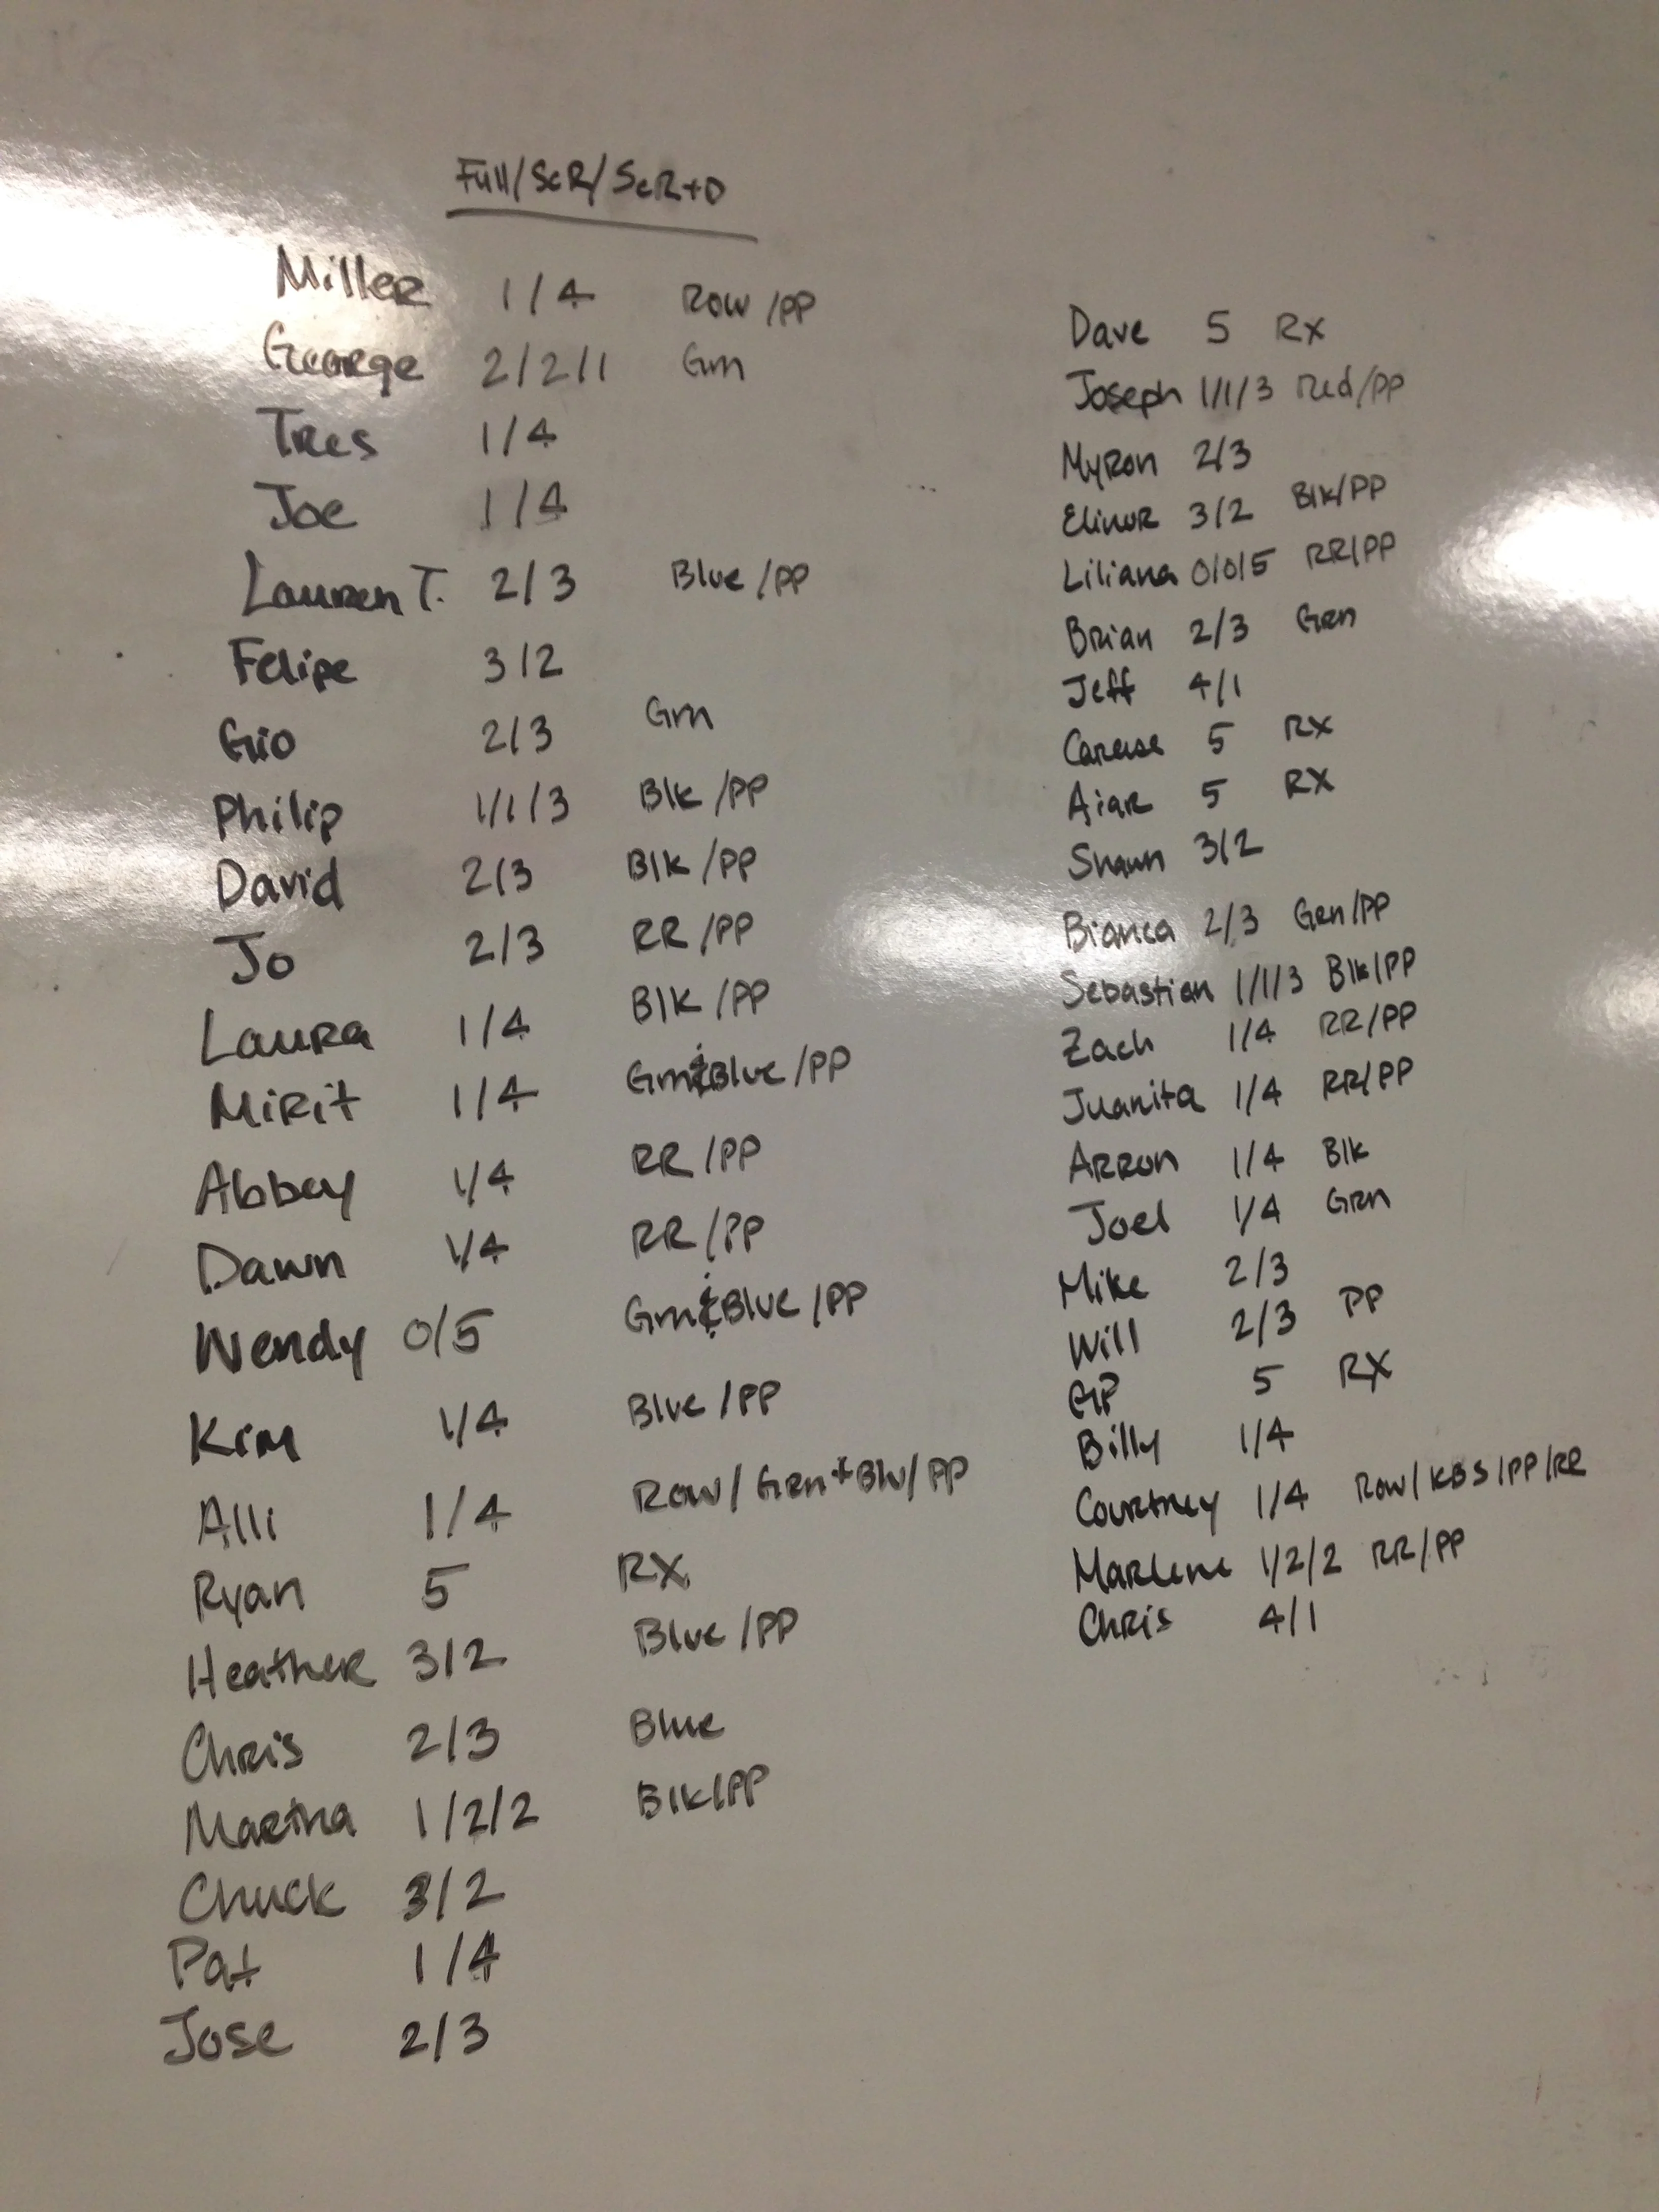 Full/ScR/ScR+D
Miller 1/4 Row/PP
George 2/2/1 Grn
Tres 1/4
Joe 1/4
Lauren T. 2/3 Blue/PP
Felipe 3/2
Gio 2/3 Grn
Philip 1/1/3 Blk/PP
David 2/3 Blk/PP
Jo 2/3 RR/PP
Laura 1/4 Blk/PP
Mirit 1/4 Grn&Blue/PP
Abbey 1/4 RR/PP
Dawn 1/4 RR/PP
Wendy 0/5 Grn&Blue/PP
Kim 1/4 Blue/PP
Alli 1/4 Row/Grn+Blu/PP
Ryan 5 RX
Heather 3/2 Blue/PP
Chris 2/3 Blue
Martha 1/2/2 Blk/PP
Chuck 3/2
Pat 1/4
Jose 2/3
Dave 5 Rx
Joseph 1/1/3 Red/PP
Myron 2/3
Elinor 3/2 Blk/PP
Liliana 0/0/5 RR/PP
Brian 2/3 Grn
Jeff 4/1
5 RX
5 RX
Shawn 3/2
Bianca 2/3 Grn/PP
Sebastian 1/1/3 Blk/PP
Zach 1/4 RR/PP
Juanita 1/4 RR/PP
Arron 1/4 Blk
Joel 1/4 Grn
Mike 2/3
Will 2/3 PP
5 RX
Billy 1/4
Courtney 1/4 Row/KBS/PP/RR
Marlene 1/2/2 RR/PP
Chris 4/1